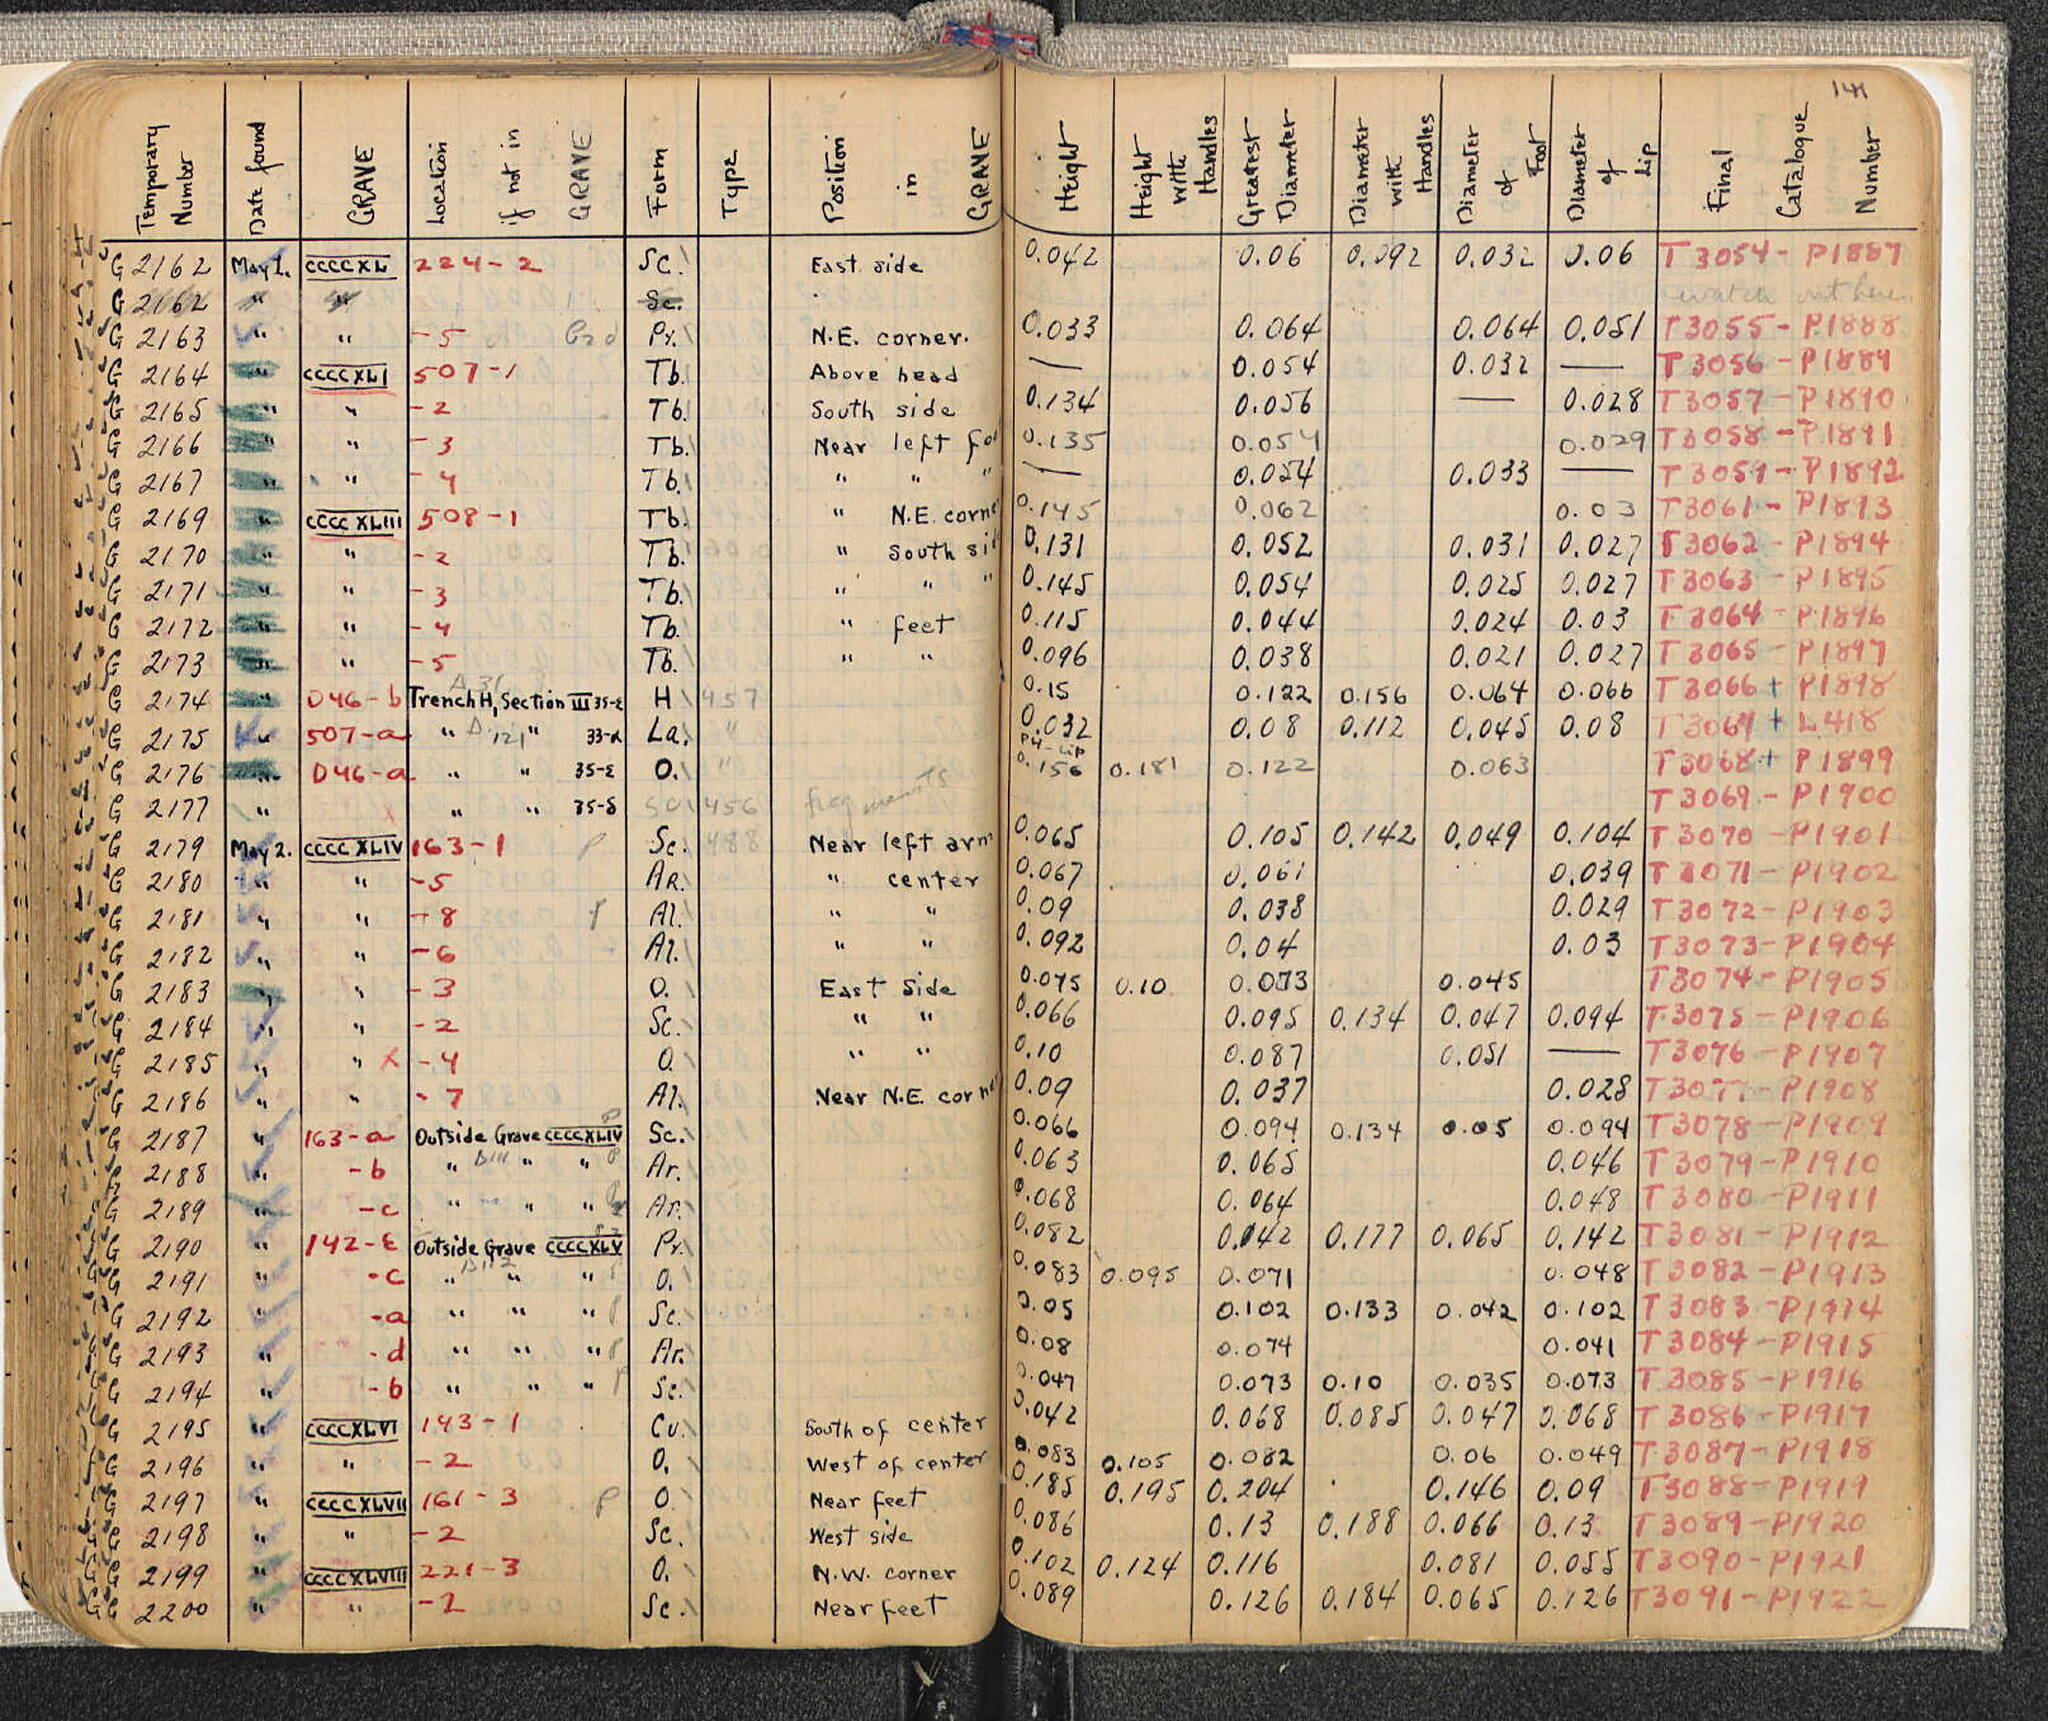 141
Temporary Number | Date found | GRAVE | Location if not in GRAVE | Form | Type | Position in GRAVE | Height | Height with Handles | Greatest Diameter | Diameter with Handles | Diameter of Foot | Diameter of Lip | Final Catalogue Number
G 2162 May 1. CCCCXL 224-2 Sc. East side 0.042 0.06 0.092 0.032 0.06 T 3054 - P1887
G 2162 " " Sc. watch out here
G 2163 " " -5 Pr. N.E. corner. 0.033 0.064 0.064 0.051 T3055 - P1888
G 2164 " CCCCXLI 507-1 Tb. Above head — 0.054 0.032 — T3056 - P1889
G 2165 " " -2 Tb. South side 0.134 0.056 — 0.028 T3057 - P1890
G 2166 " " -3 Tb. Near left 0.135 0.054 0.029 T3058 - P1891
G 2167 " " -4 Tb. " " " — 0.054 0.033 — T3059 - P1892
G 2169 " CCCCXLIII 508-1 Tb. " N.E. corne 0.145 0.062 0.03 T3061 - P1893
G 2170 " " -2 Tb. " South sid 0.131 0.052 0.031 0.027 T3062 - P1894
G 2171 " " -3 Tb. " " " 0.145 0.054 0.025 0.027 T3063 - P1895
G 2172 " " -4 Tb. " feet 0.115 0.044 0.024 0.03 T3064 - P1896
G 2173 " " -5 Tb. " " 0.096 0.038 0.021 0.027 T3065 - P1897
G 2174 " 046-b Trench H, Section III 35-ε H 457 0.15 0.122 0.156 0.064 0.066 T3066 + P1898
G 2175 " 507-a " " 33-α La. " 0.032 0.08 0.112 0.045 0.08 T3067 + L418
G 2176 " 046-a " " 35-ε O. " 0.156 0.181 0.122 0.063 T3068 + P1899
G 2177 " " " 35-δ 456 fragments T3069 - P1900
G 2179 May 2. CCCCXLIV 163-1 Sc. 488 Near left arm 0.065 0.105 0.142 0.049 0.104 T3070 - P1901
G 2180 " " -5 AR. " center 0.067 0.061 0.039 T3071 - P1902
G 2181 " " -8 Al. " " 0.09 0.038 0.029 T3072 - P1903
G 2182 " " -6 Al. " " 0.092 0.04 0.03 T3073 - P1904
G 2183 " " -3 O. East Side 0.075 0.10 0.073 0.045 T3074 - P1905
G 2184 " " -2 Sc. " " 0.066 0.095 0.134 0.047 0.094 T3075 - P1906
G 2185 " " X -4 O. " " 0.10 0.087 0.051 — T3076 - P1907
G 2186 " " -7 Al. Near N.E. corner 0.09 0.037 0.028 T3077 - P1908
G 2187 " 163-a Outside Grave CCCCXLIV Sc. 0.066 0.094 0.134 0.05 0.094 T3078 - P1909
G 2188 " -b " " " Ar. 0.063 0.065 0.046 T3079 - P1910
G 2189 " -c " " " Ar. 0.068 0.064 0.048 T3080 - P1911
G 2190 " 142-ε Outside Grave CCCCXLV Pr. 0.082 0.142 0.177 0.065 0.142 T3081 - P1912
G 2191 " -c " " " O. 0.083 0.095 0.071 0.048 T3082 - P1913
G 2192 " -a " " " Sc. 0.05 0.102 0.133 0.042 0.102 T3083 - P1914
G 2193 " -d " " " Ar. 0.08 0.074 0.041 T3084 - P1915
G 2194 " -b " " " Sc. 0.047 0.073 0.10 0.035 0.073 T3085 - P1916
G 2195 " CCCCXLVI 143-1 Cu. South of center 0.042 0.068 0.085 0.047 0.068 T3086 - P1917
G 2196 " " -2 O. West of center 0.083 0.105 0.082 0.06 0.049 T3087 - P1918
G 2197 " CCCCXLVII 161-3 O. Near feet 0.185 0.195 0.204 0.146 0.09 T3088 - P1919
G 2198 " " -2 Sc. West side 0.086 0.13 0.188 0.066 0.13 T3089 - P1920
G 2199 " CCCCXLVIII 221-3 O. N.W. corner 0.102 0.124 0.116 0.081 0.055 T3090 - P1921
G 2200 " " -2 Sc. Near feet 0.089 0.126 0.184 0.065 0.126 T3091 - P1922